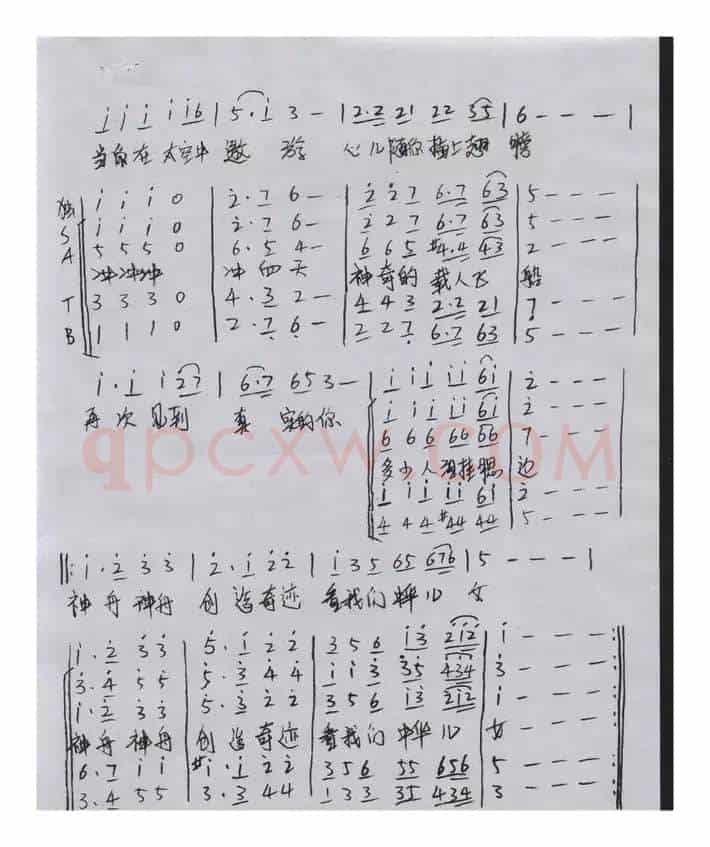 i i i i i 6 | 5 · i 3 — | 2·2 21 22 35 | 6 - - - |
当你在太空中 遨 游 心儿随你插上翅 膀
独 i i i 0 | 2 · 7 6 — | 2 2 7 6·7 63 | 5 - - -
S i i i 0 | 2 · 7 6 — | 2 2 7 6·7 63 | 5 - - -
A 5 5 5 0 | 6 · 5 4 — | 6 6 5 #4·4 43 | 2 - - -
冲冲冲 冲 向 天 神奇的 载人飞 船
T 3 3 3 0 | 4 · 3 2 — | 4 4 3 2·2 21 | 7 - - -
B 1 1 1 0 | 2 · 7 6 — | 2 2 7 6·7 63 | 5 - - -
i · i i 27 | 6·7 653 — | i i i i i 6i | 2 - - -
再 次 见到 真 实的你
i i i i i 6i | 2 - - -
6 6 6 66 66 | 7 - - -
多少人 牵挂 边
i i i i i 6i | 2 - - -
4 4 4 #44 44 | 5 - - -
qpcxw.com
‖: i · 2 3 3 | 2 · i 2 2 | i 3 5 65 676 | 5 - - - |
神 舟 神舟 创 造奇迹 看我们 中华儿 女
i · 2 3 3 | 5 · i 2 2 | 3 5 6 i3 2i2 | i - - - :‖
3 · 4 5 5 | 5 · 3 4 4 | i i 3 35 434 | 3 - - -
i · 2 3 3 | 5 · 3 2 2 | 3 5 6 i3 2i2 | i - - -
神 舟 神舟 创 造奇迹 看我们 中华儿 女
6 · 7 i i | #i · i 2 2 | 3 5 6 55 656 | 5 - - -
3 · 4 5 5 | 3 · 3 4 4 | 1 3 3 35 434 | 3 - - -